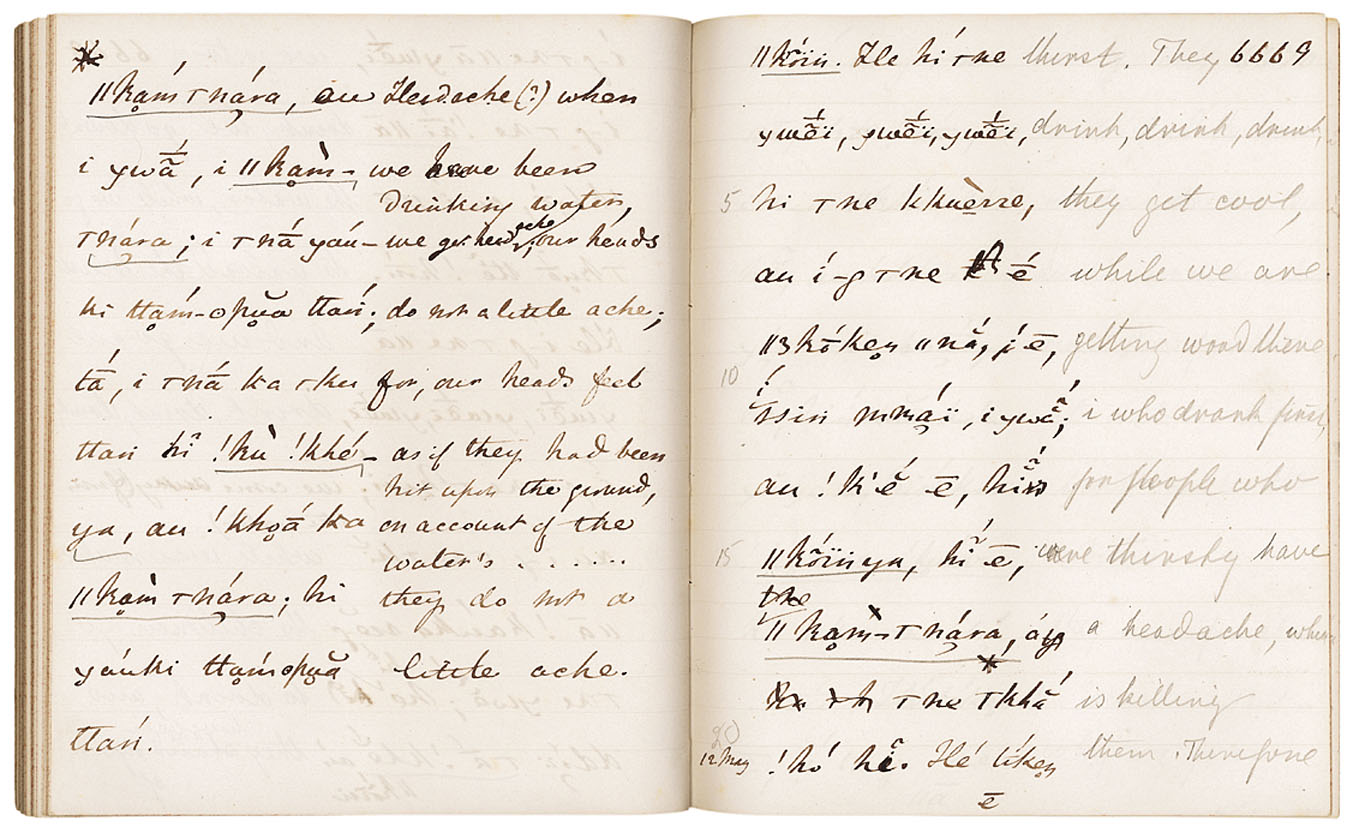 *
ǁkạḿ тnára, au Headache (?) when
i ywā̃, i ǁkạm̀- we have been
drinking water,
тnára; i тnā́ yáu- we get head ache; our heads
ki ttạḿ-ọpụa ttaṅ́; do not a little ache;
tā́, i тnā́ ka тku for, our heads feel
ttaṅ hĩ !kù !khé- as if they had been
hit upon the ground,
ya, au !khọā́ ka on account of the
water's ......
ǁkạm̀ тnára; hi they do not a
yáuki ttạḿọpụa little ache.
ttaṅ́.
ǁkṏiṅ. He hi тne thirst. They 6669
ywẽ́i, ywẽ́i, ywẽ́i, drink, drink, drink,
5 hi тne kkuèrre, they get cool,
au í-g тne é while we are
ǁkō̆keṇ ǁnā̆́, í ē, getting wood there
10
í
ssiṅ mmáïi, i ywā̃; i who drank first,
au !k'ĕ́ ē, hĩṅ for people who
15 ǁkṏiṅya, hĩ ē, were thirsty have
ǁkạm̀-тnára, a headache, when
тne тkhā̆́ is killing
20
12 May !hó hĩ. Hé tíkeṇ them. Therefore
ē